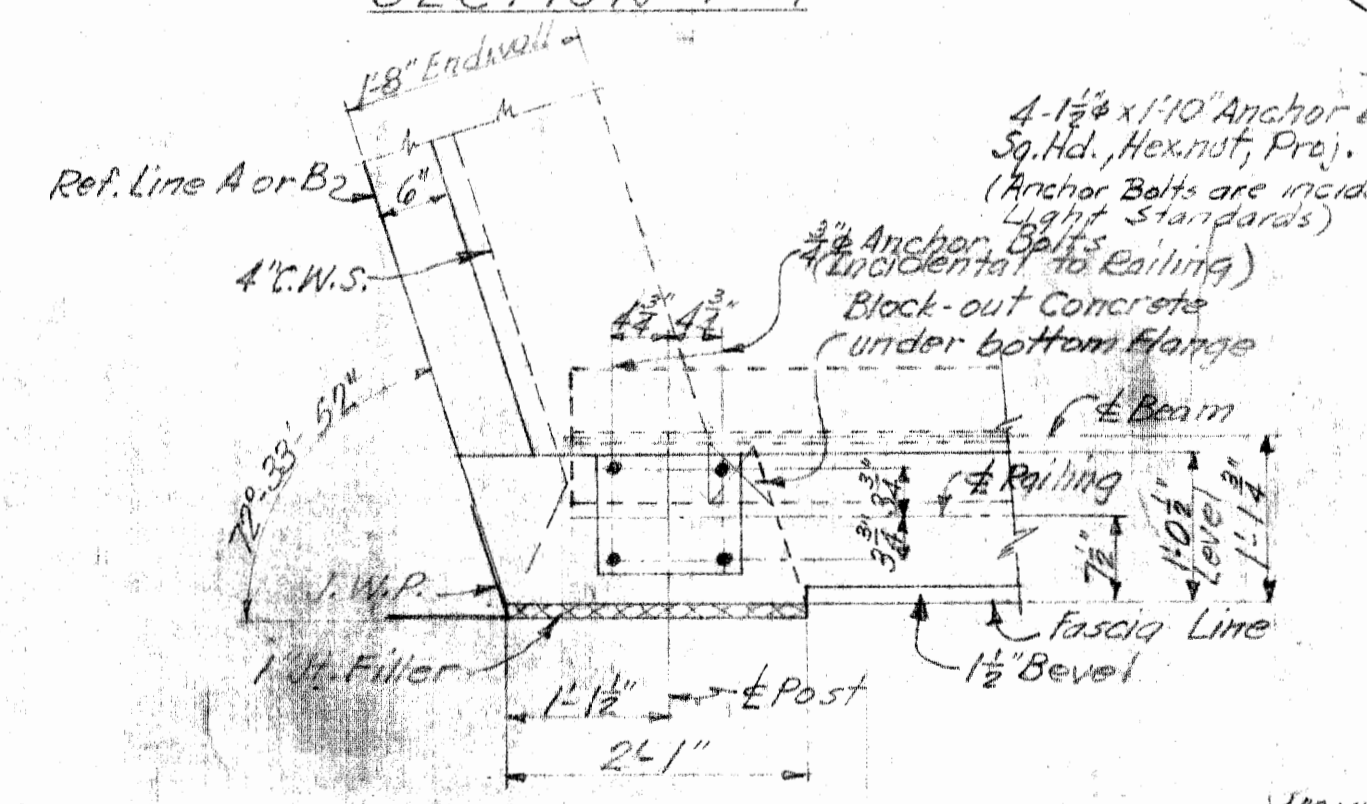 SECTION
1'-8" Endwall
Ref. Line A or B2
6"
4" C.W.S.
72°-33'-52"
4-1½"φ x 1'-10" Anchor
Sq. Hd., Hex nut, Proj.
(Anchor Bolts are incid
Light Standards)
¾"φ Anchor Bolts
(Incidental to Railing)
Block-out Concrete
under bottom Flange
4¾" 4¾"
℄ Beam
℄ Railing
3¾"
3¾"
7½"
1'-0½"
Level
1'-1¾"
J.W.P.
1" Jt. Filler
Fascia Line
1½" Bevel
1'-1½"
℄ Post
2'-1"